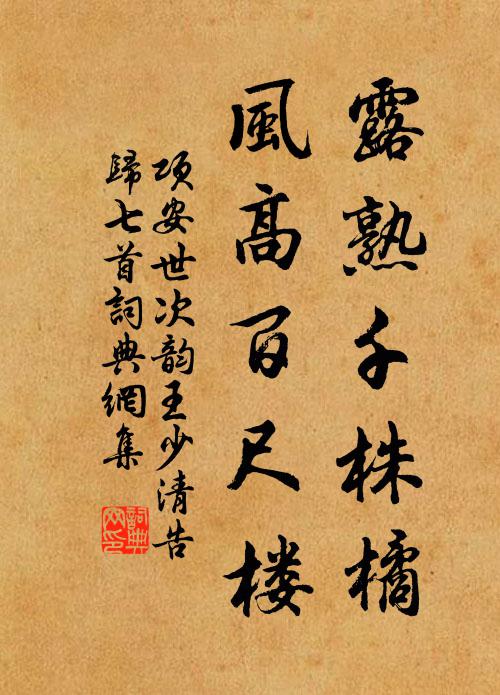 露熟千株橘
風高百尺楼
项安世次韵王少清告
歸七首詞典網集
詞典網印